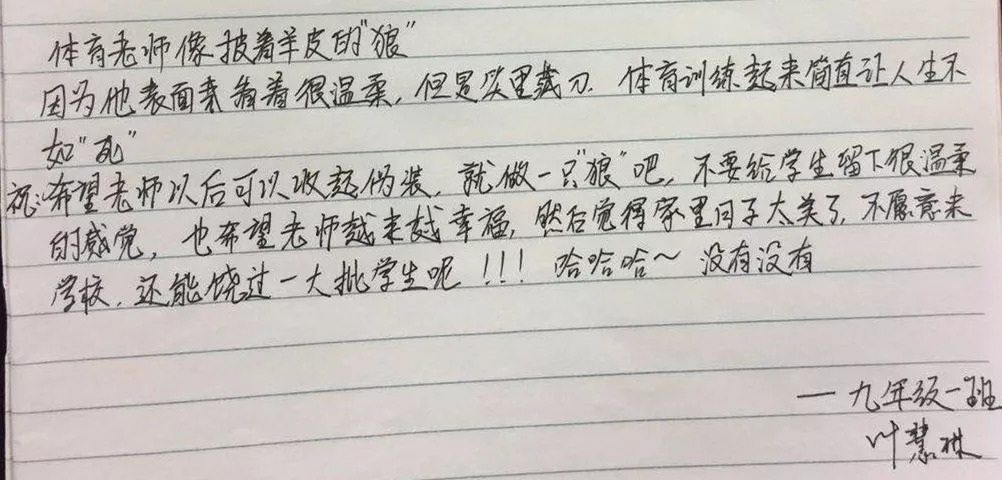 体育老师像披着羊皮的"狼"
因为他表面来看着很温柔,但是笑里藏刀.体育训练起来简直让人生不
如"死"
祝:希望老师以后可以收起伪装,就做一只"狼"吧,不要给学生留下很温柔
的感觉,也希望老师越来越幸福,然后觉得家里日子太美了,不愿意来
学校,还能饶过一大批学生呢!!!哈哈哈~没有没有
—九年级一班
叶慧琳